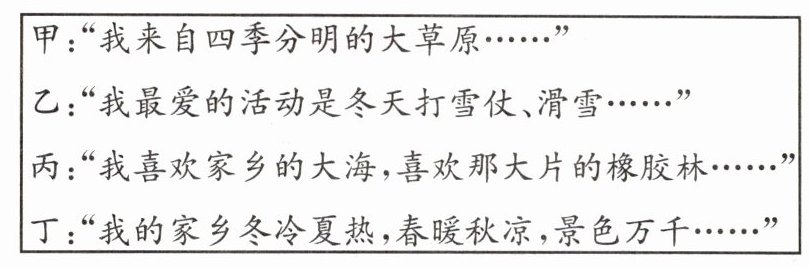 甲:“我来自四季分明的大草原……”
乙:“我最爱的活动是冬天打雪仗、滑雪……”
丙:“我喜欢家乡的大海,喜欢那大片的橡胶林……”
丁:“我的家乡冬冷夏热,春暖秋凉,景色万千……”